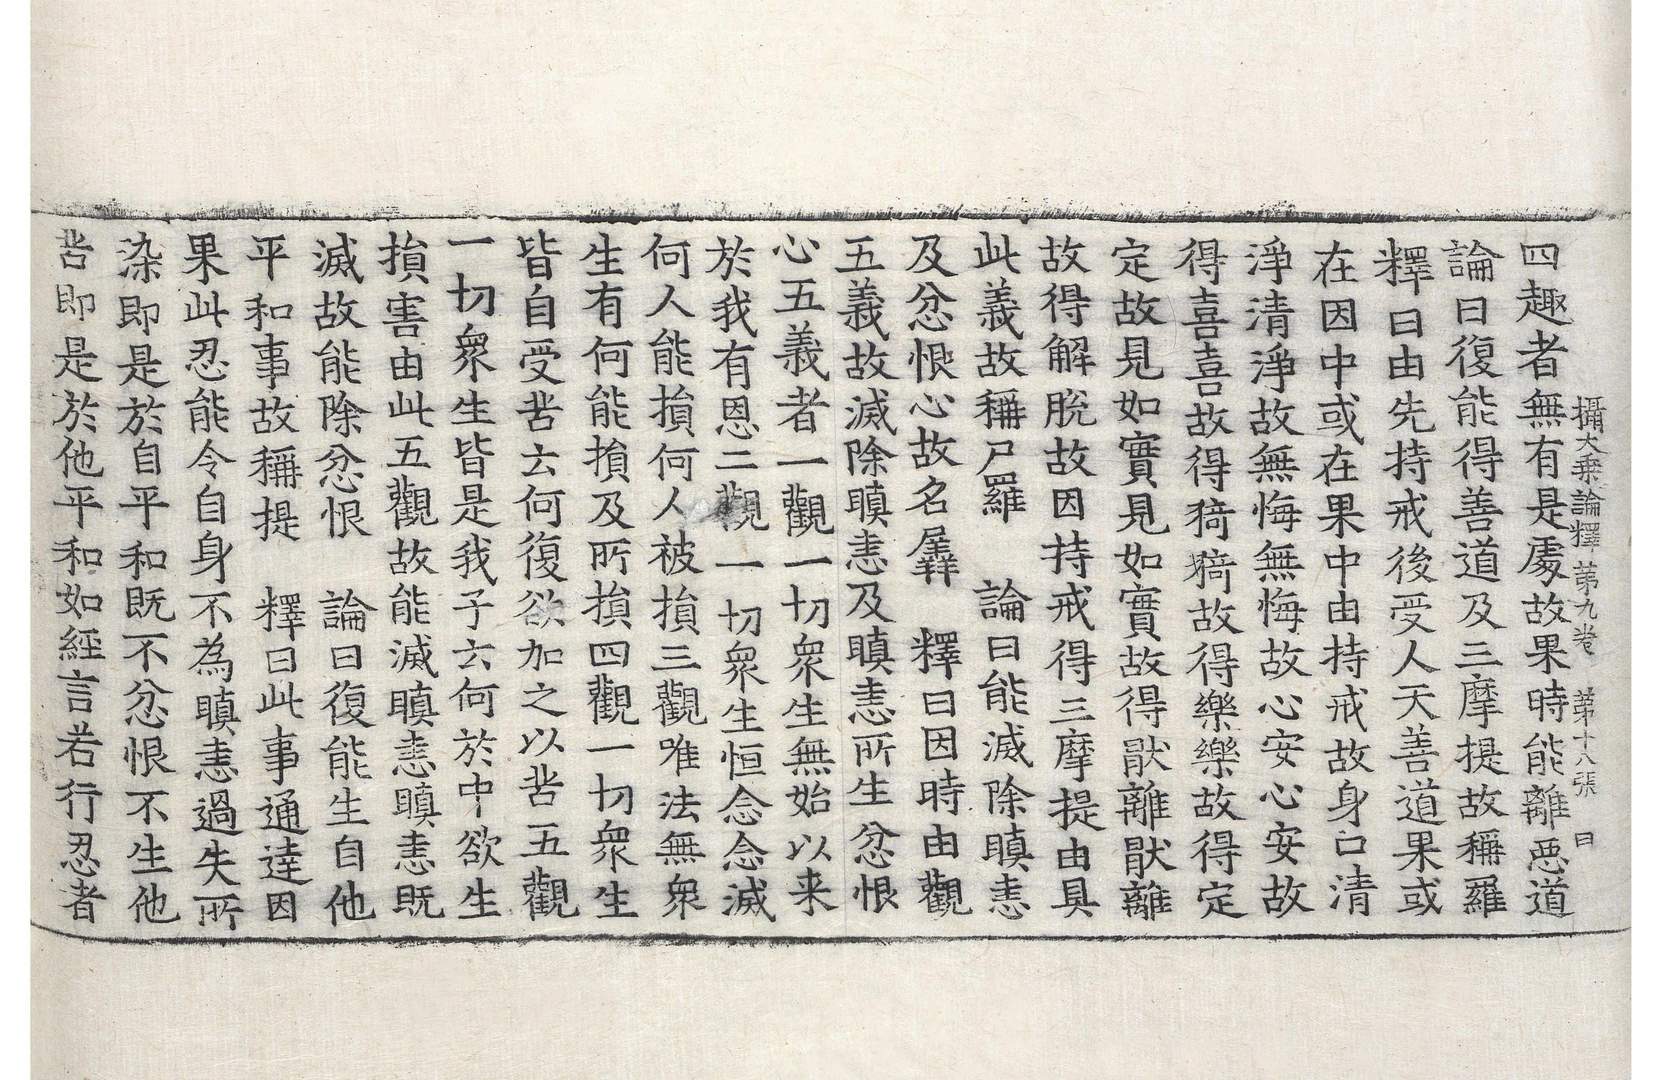 攝大乗論釋 苐九卷 苐十八張 曰
四趣者無有是處故果時能離惡道
論曰復能得善道及三摩提故稱羅
釋曰由先持戒後受人天善道果或
在因中或在果中由持戒故身口清
淨清淨故無悔無悔故心安心安故
得喜喜故得猗猗故得樂樂故得定
定故見如實見如實故得猒離猒離
故得解脫故因持戒得三摩提由具
此義故稱尸羅 論曰能滅除瞋恚
及忿恨心故名羼 釋曰因時由觀
五義故滅除瞋恚及瞋恚所生忿恨
心五義者一觀一切衆生無始以来
於我有恩二觀一切衆生恒念念滅
何人能損何人被損三觀唯法無衆
生有何能損及所損四觀一切衆生
皆自受苦云何復欲加之以苦五觀
一切衆生皆是我子云何於中欲生
損害由此五觀故能滅瞋恚瞋恚既
滅故能除忿恨 論曰復能生自他
平和事故稱提 釋曰此事通達因
果此忍能令自身不為瞋恚過失所
染即是於自平和既不忿恨不生他
苦即是於他平和如經言若行忍者